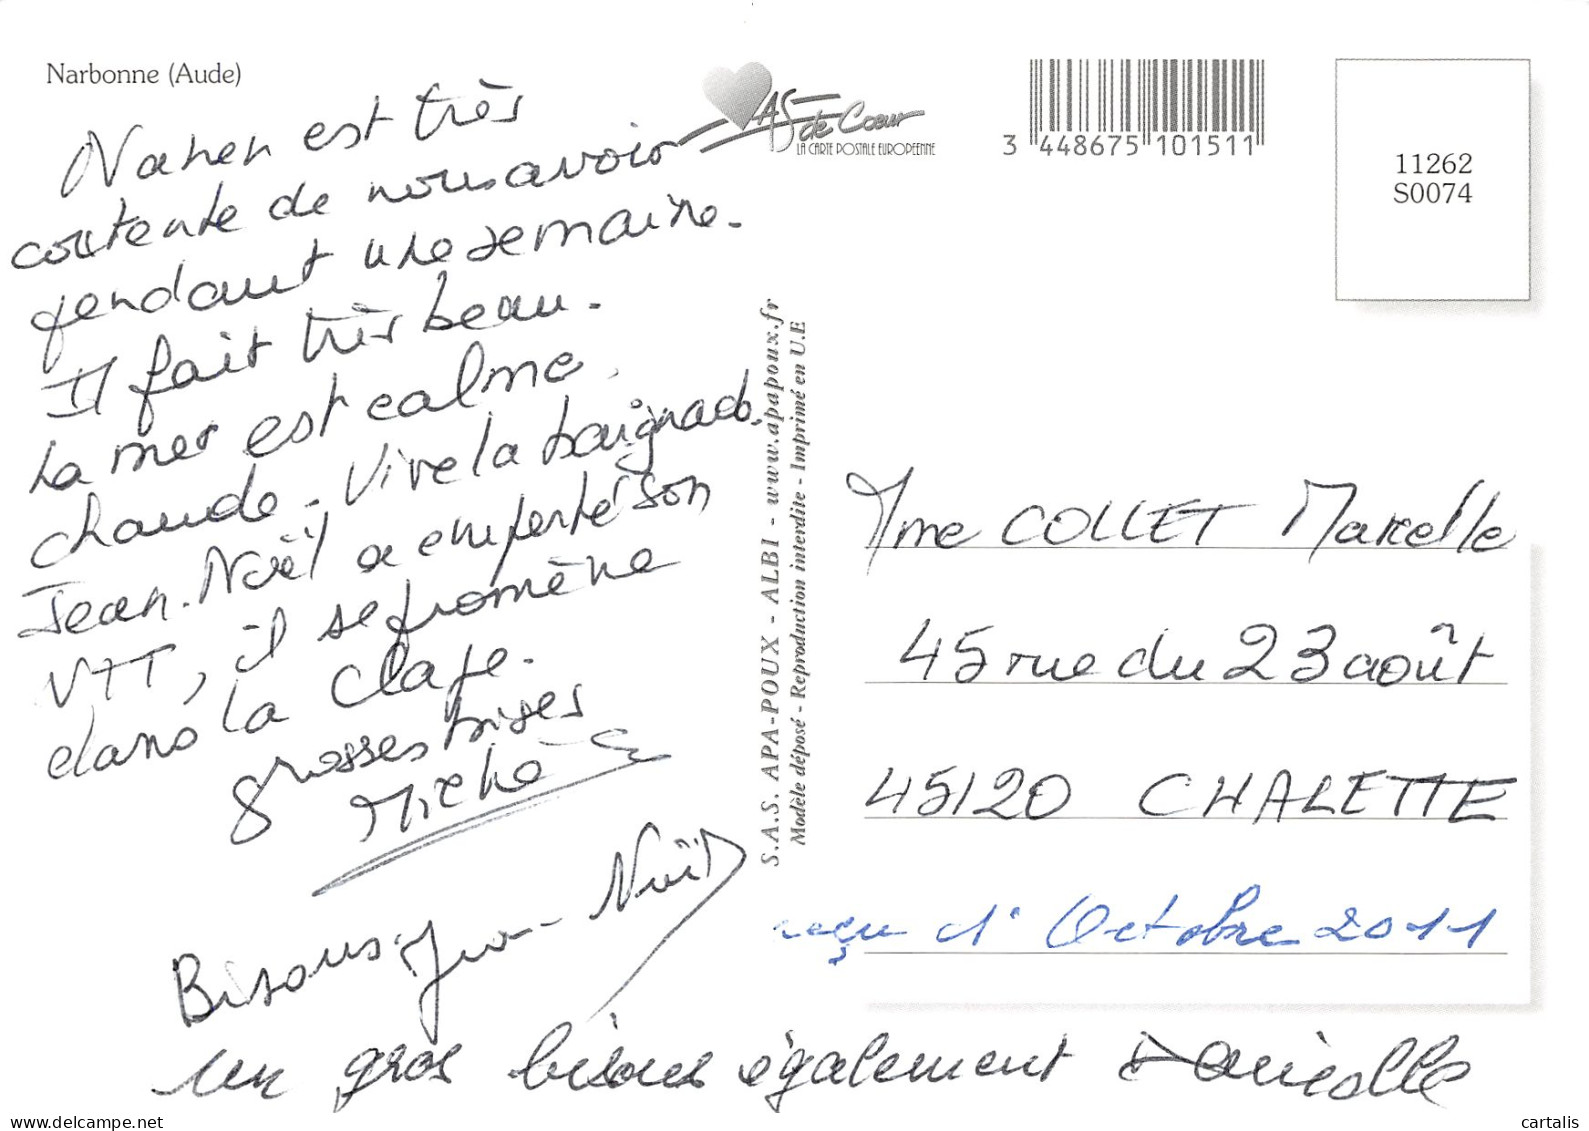 Narbonne (Aude)
est très
contente de nous avoir
pendant une semaine.
Il fait très beau.
La mer est calme,
chaude. Vive la baignade.
Jean-Noël a emporté son
VTT, il se promène
dans la Clape.
grosses bises
Michèle
Bisous Jean-Noël
un gros bisous également Danielle
AS de Cœur
LA CARTE POSTALE EUROPEENNE
3 448675 101511
11262
S0074
S.A.S. APA-POUX - ALBI - www.apapoux.fr
Modèle déposé - Reproduction interdite - Imprimé en U.E
Mme COLLET Marcelle
45 rue du 23 août
45120 CHALETTE
reçu d' Octobre 2011
delcampe.net
cartalis